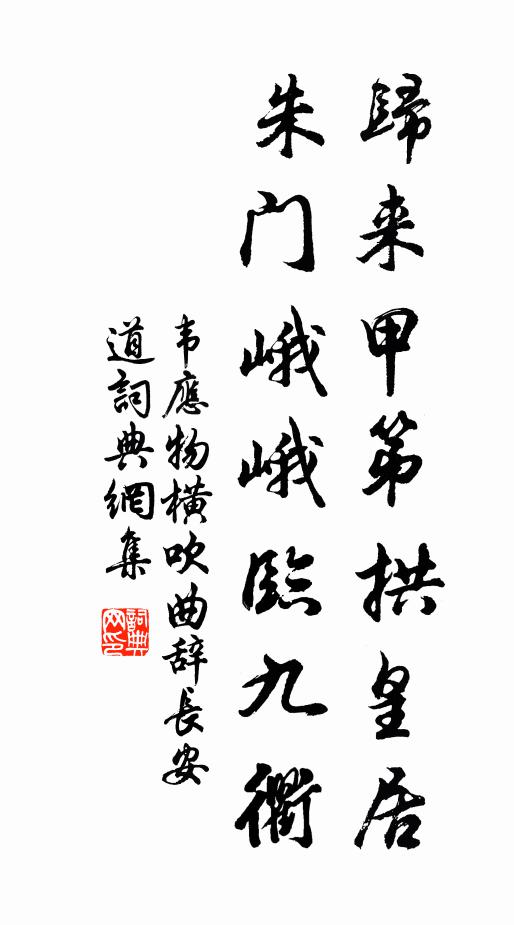 歸来甲第拱皇居
朱門峨峨臨九衢
韦應物横吹曲辞長安
道詞典網集
詞典
网印